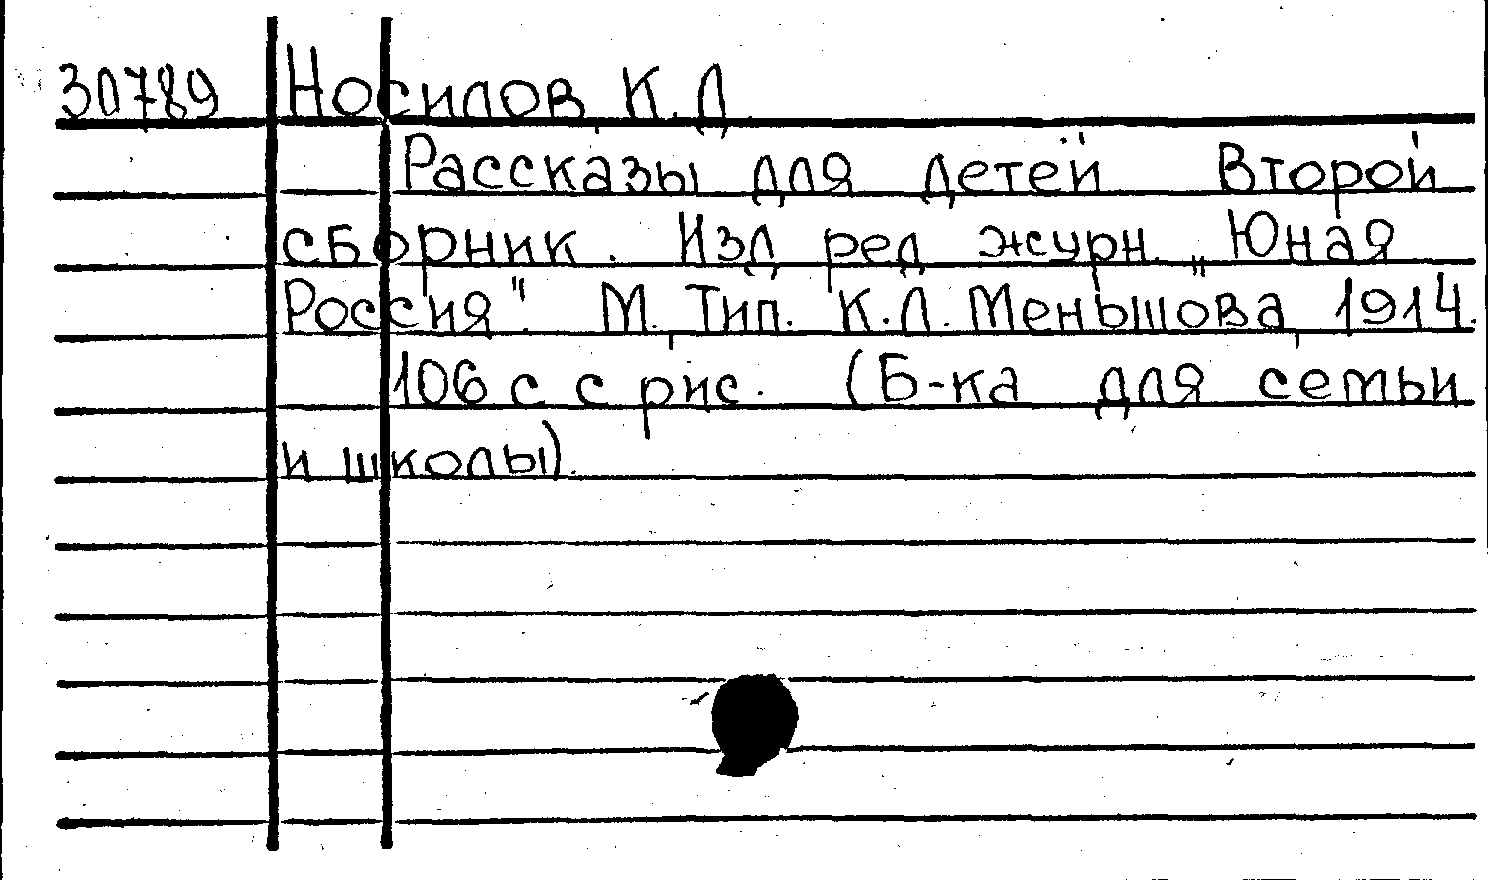 30789 Носилов, К. Д.
Рассказы для детей Второй
сборник. Изд ред журн. „Юная
Россия". М., Тип. К.Л. Меньшова, 1914.
106 с с рис. (Б-ка для семьи
и школы).